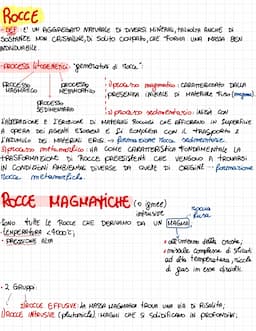 ROCCE
- DEF: E' UN AGGREGATO NATURALE DI DIVERSI MINERALI, TALVOLTA ANCHE DI
SOSTANZE NON CRISTALLINE, DI SOLITO COMPATTO, CHE FORMA UNA MASSA BEN
INDIVIDUABILE.
- PROCESSI LITOGENETICI: "generatori di rocce":
PROCESSO MAGMATICO
PROCESSO METAMORFICO
PROCESSO SEDIMENTARIO
il processo magmatico: CARATTERIZZATO DALLA
PRESENZA INIZIALE DI MATERIALE FUSO (magma).
il processo sedimentario: INIZIA CON
L'ALTERAZIONE E L'EROSIONE DI MATERIALI ROCCIOSI CHE AFFIORANO IN SUPERFICIE
A OPERA DEI AGENTI ESOGENI E SI COMPLETA CON IL TRASPORTO E
L'ACCUMULO DEI MATERIALI EROSI → formazione rocce sedimentarie.
il processo metamorfico: HA COME CARATTERISTICA FONDAMENTALE LA
TRASFORMAZIONE DI ROCCE PREESISTENTI CHE VENGONO A TROVARSI
IN CONDIZIONI AMBIENTALI DIVERSE DA QUELLE DI ORIGINE → formazione
rocce metamorfiche.
ROCCE MAGMATICHE (o ignee)
SONO TUTTE LE ROCCE CHE DERIVANO DA UN MAGMA
roccia fusa
- TEMPERATURA <1000°C;
- PRESSIONE ALTA
• all'interno della crosta;
• miscele complesse di silicati
ad alta temperatura, ricche
di gas in esse disciolti.
- 2 GRUPPI:
1) ROCCE EFFUSIVE: LA MASSA MAGMATICA TROVA UNA VIA DI RISALITA;
2) ROCCE INTRUSIVE (plutoniche): MAGMI CHE SI SOLIDIFICANO IN PROFONDITÀ;